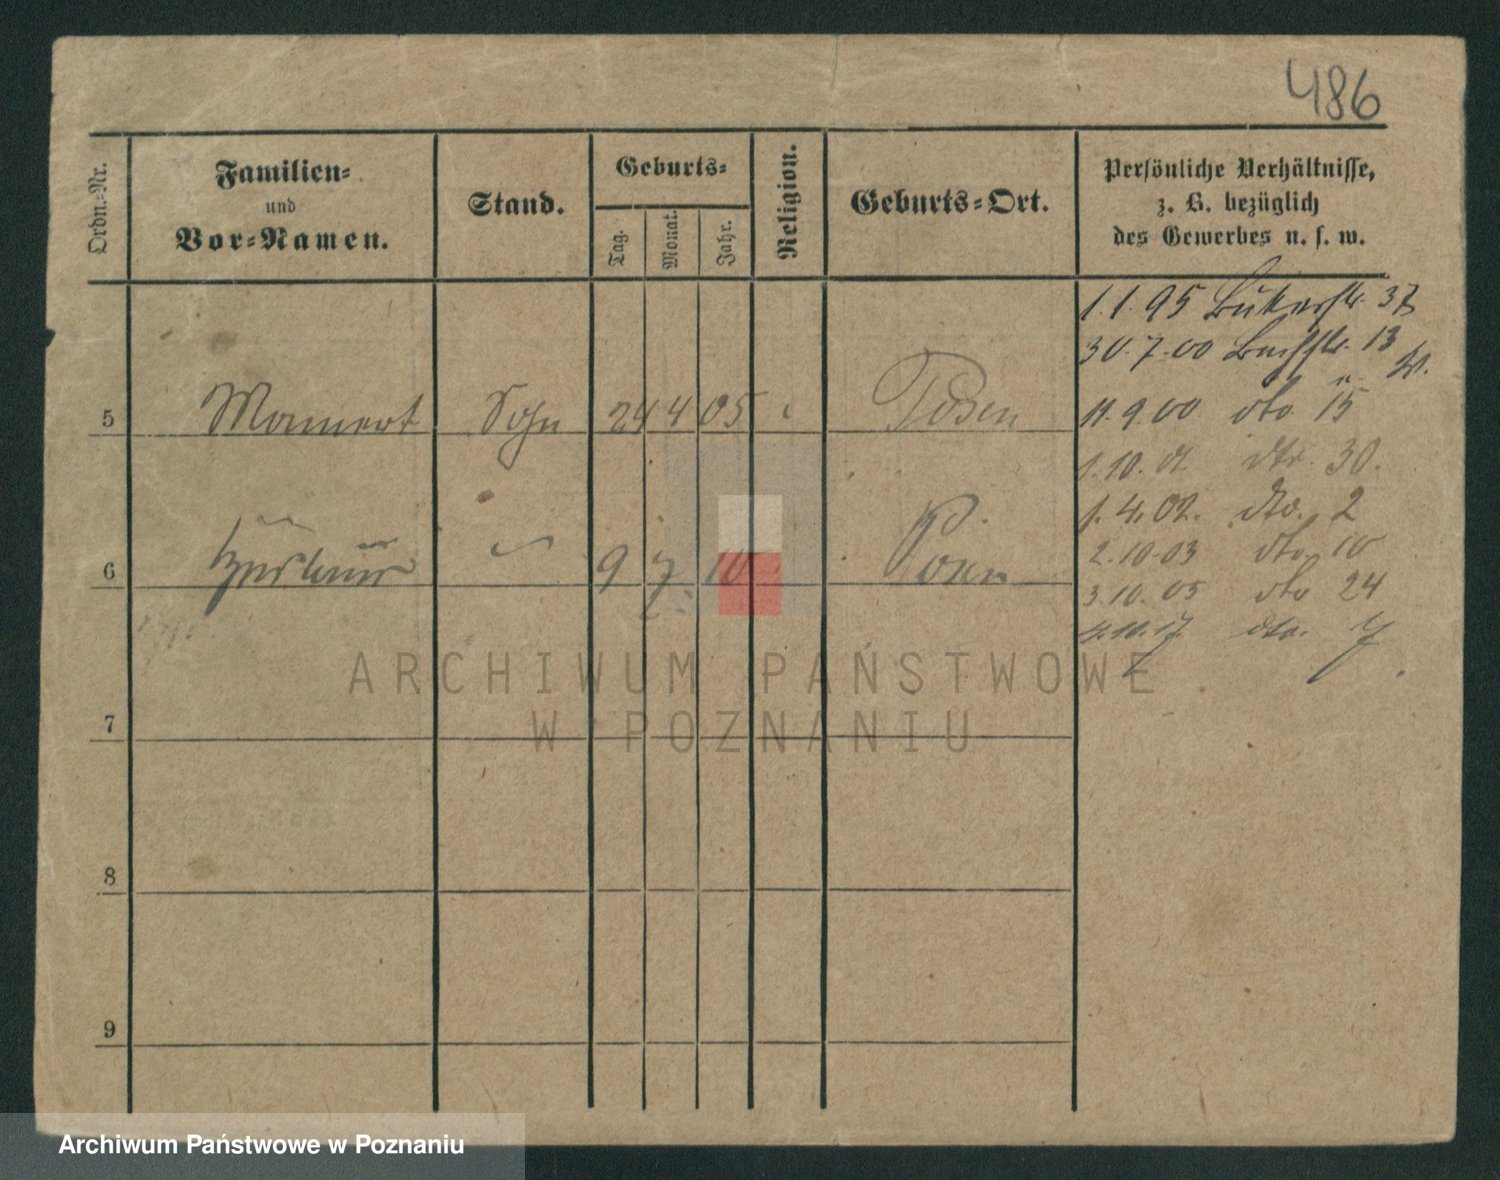 486
Ordn.-Nr.
Familien-
und
Vor-Namen.
Stand.
Geburts-
Tag.
Monat.
Jahr.
Religion.
Geburts-Ort.
Persönliche Verhältnisse,
z. B. bezüglich
des Gewerbes u. s. w.
1.1.95 Bukerstr. 37
30.7.00 Bachstr. 13
W.
5 Mamert Sohn 24 4 05 Posen
11.9.00 dto 15
1.10.01. dto. 30.
1.4.02. dto. 2
6 9 7 10 Posen
2.10.03 dto 10
3.10.05 dto 24
4.10.17 dto. 7
ARCHIWUM PAŃSTWOWE
W POZNANIU
7
8
9
Archiwum Państwowe w Poznaniu